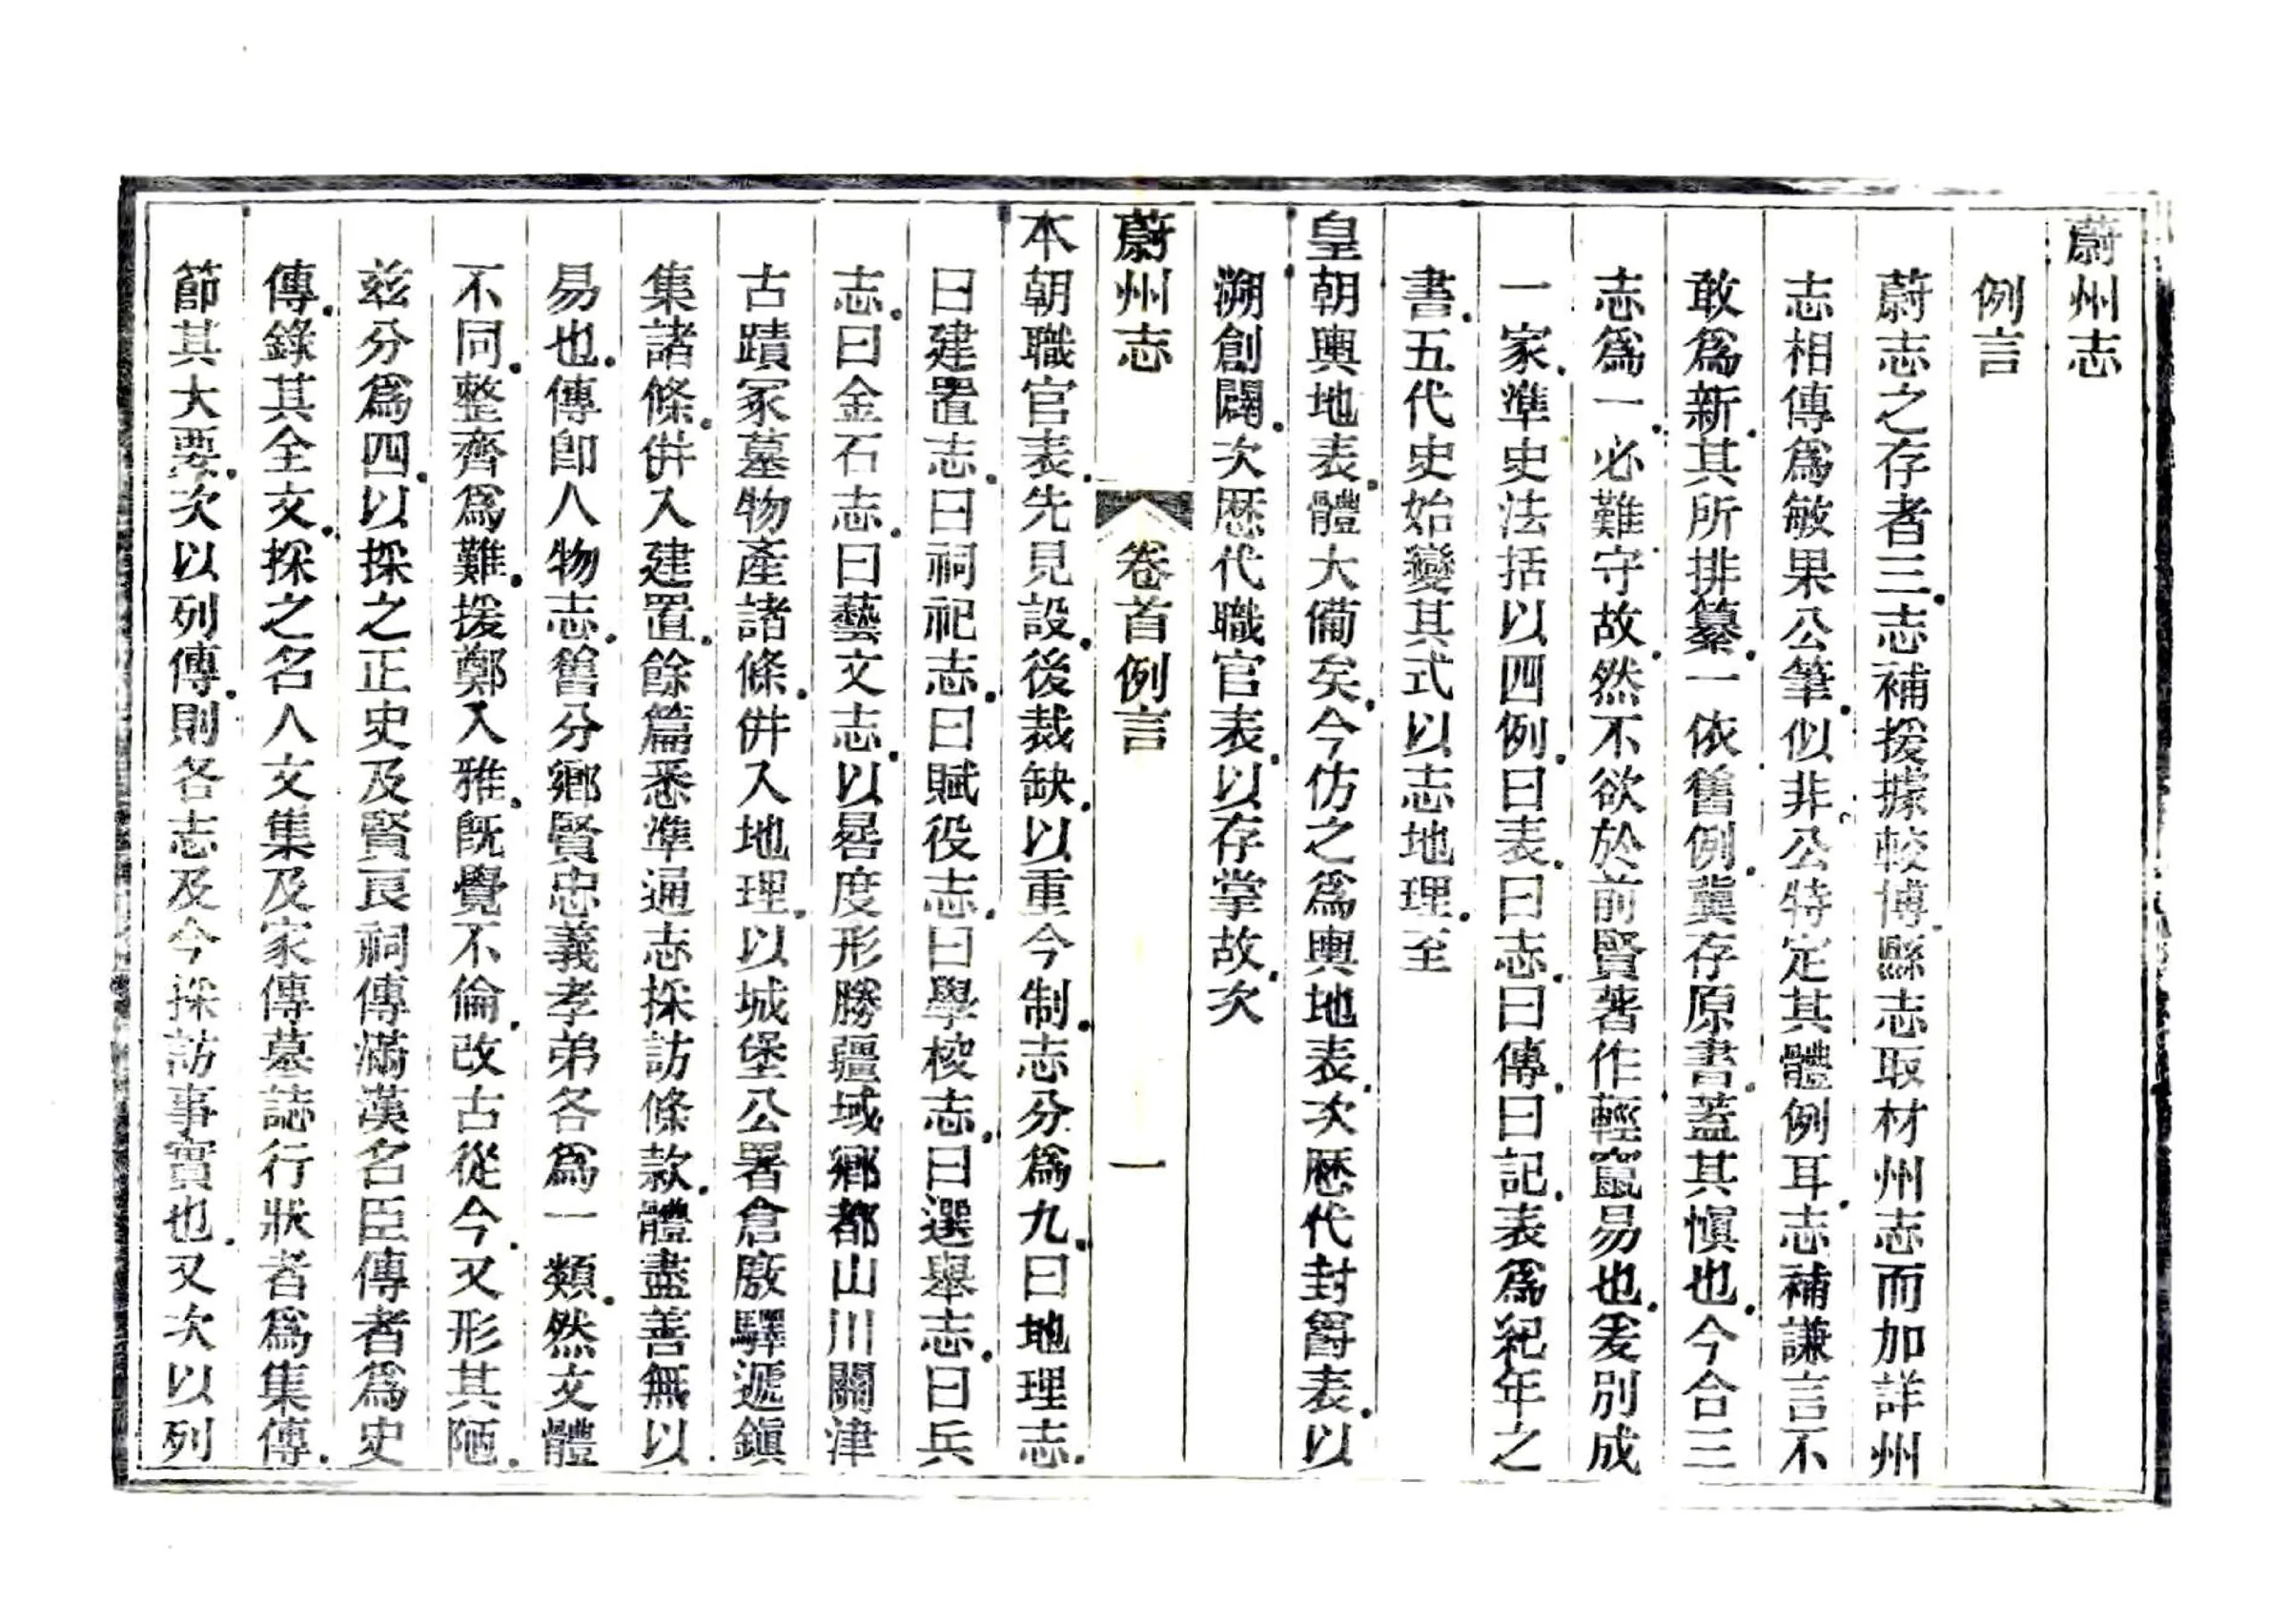 蔚州志
例言
蔚志之存者三志補援據較博縣志取材州志而加詳州
志相傳爲敏果公筆似非公特定其體例耳志補謙言不
敢爲新其所排纂一依舊例冀存原書蓋其愼也今合三
志爲一必難守故然不欲於前賢著作輕竄易也爰別成
一家準史法括以四例曰表曰志曰傳曰記表爲紀年之
書五代史始變其式以志地理至
皇朝輿地表體大備矣今仿之爲輿地表次歷代封爵表以
溯創闢次歷代職官表以存掌故次
蔚州志 卷首例言 一
本朝職官表先見設後裁缺以重今制志分爲九曰地理志
曰建置志曰祠祀志曰賦役志曰學校志曰選舉志曰兵
志曰金石志曰藝文志以晷度形勝疆域鄉都山川關津
古蹟冢墓物產諸條併入地理以城堡公署倉廒驛遞鎭
集諸條併入建置餘篇悉準通志採訪條款體盡善無以
易也傳卽人物志舊分鄉賢忠義孝弟各爲一類然文體
不同整齊爲難援鄭入雅旣覺不倫改古從今又形其陋
玆分爲四以採之正史及賢良祠傳滿漢名臣傳者爲史
傳錄其全文採之名人文集及家傳墓誌行狀者爲集傳
節其大要次以列傳則各志及今採訪事實也又次以列